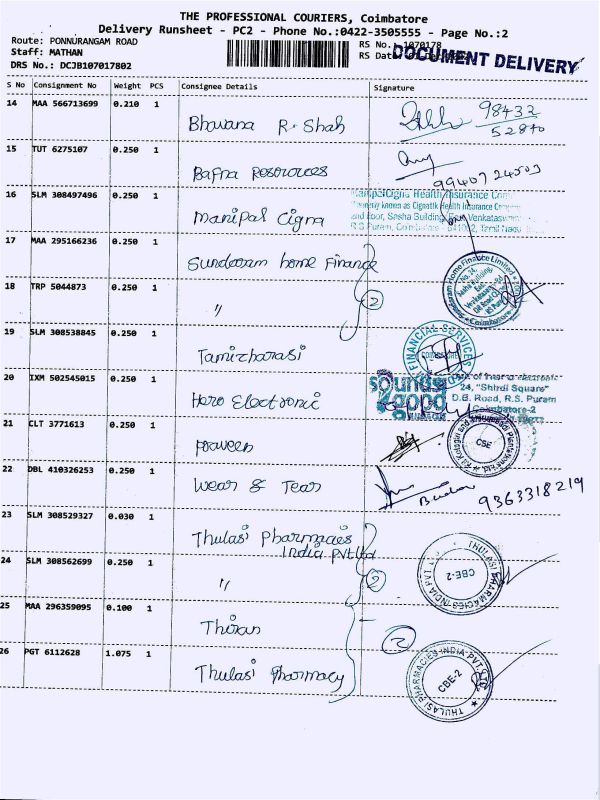 THE PROFESSIONAL COURIERS, Coimbatore
Delivery Runsheet - PC2 - Phone No.:0422-3505555 - Page No.:2
Route: PONNURANGAM ROAD
Staff: MATHAN
DRS No.: DCJB107017802
RS No.: 1070178
RS Dat
DOCUMENT DELIVERY
S No Consignment No Weight PCS Consignee Details Signature
14 MAA 566713699 0.210 1 Bhavana R. Shah 98432
52840
15 TUT 6275107 0.250 1 Bafna Resources 9940724503
16 SLM 308497496 0.250 1 Manipal Cigna
ManipalCigna Health Insurance Com
17 MAA 295166236 0.250 1 Sundaram home Finance
18 TRP 5044873 0.250 1 〃 2
19 SLM 308538845 0.250 1 Tamizharasi
FINANCIAL SERVICES
20 IXM 502545015 0.250 1 Hero Electronic
24, "Shirdi Square"
D.B. Road, R.S. Puram
Coimbatore-2
21 CLT 3771613 0.250 1 Praveen
CBE
22 DBL 410326253 0.250 1 Wear & Tear 9363318219
23 SLM 308529327 0.030 1 Thulasi Pharmacies
India Pvt Ltd
24 SLM 308562699 0.250 1 〃 2
THULASI PHARMACIES INDIA PVT LTD
CBE-2
25 MAA 296359095 0.100 1 Thiran
2
26 PGT 6112628 1.075 1 Thulasi Pharmacy
THULASI PHARMACIES INDIA PVT. LTD
CBE-2